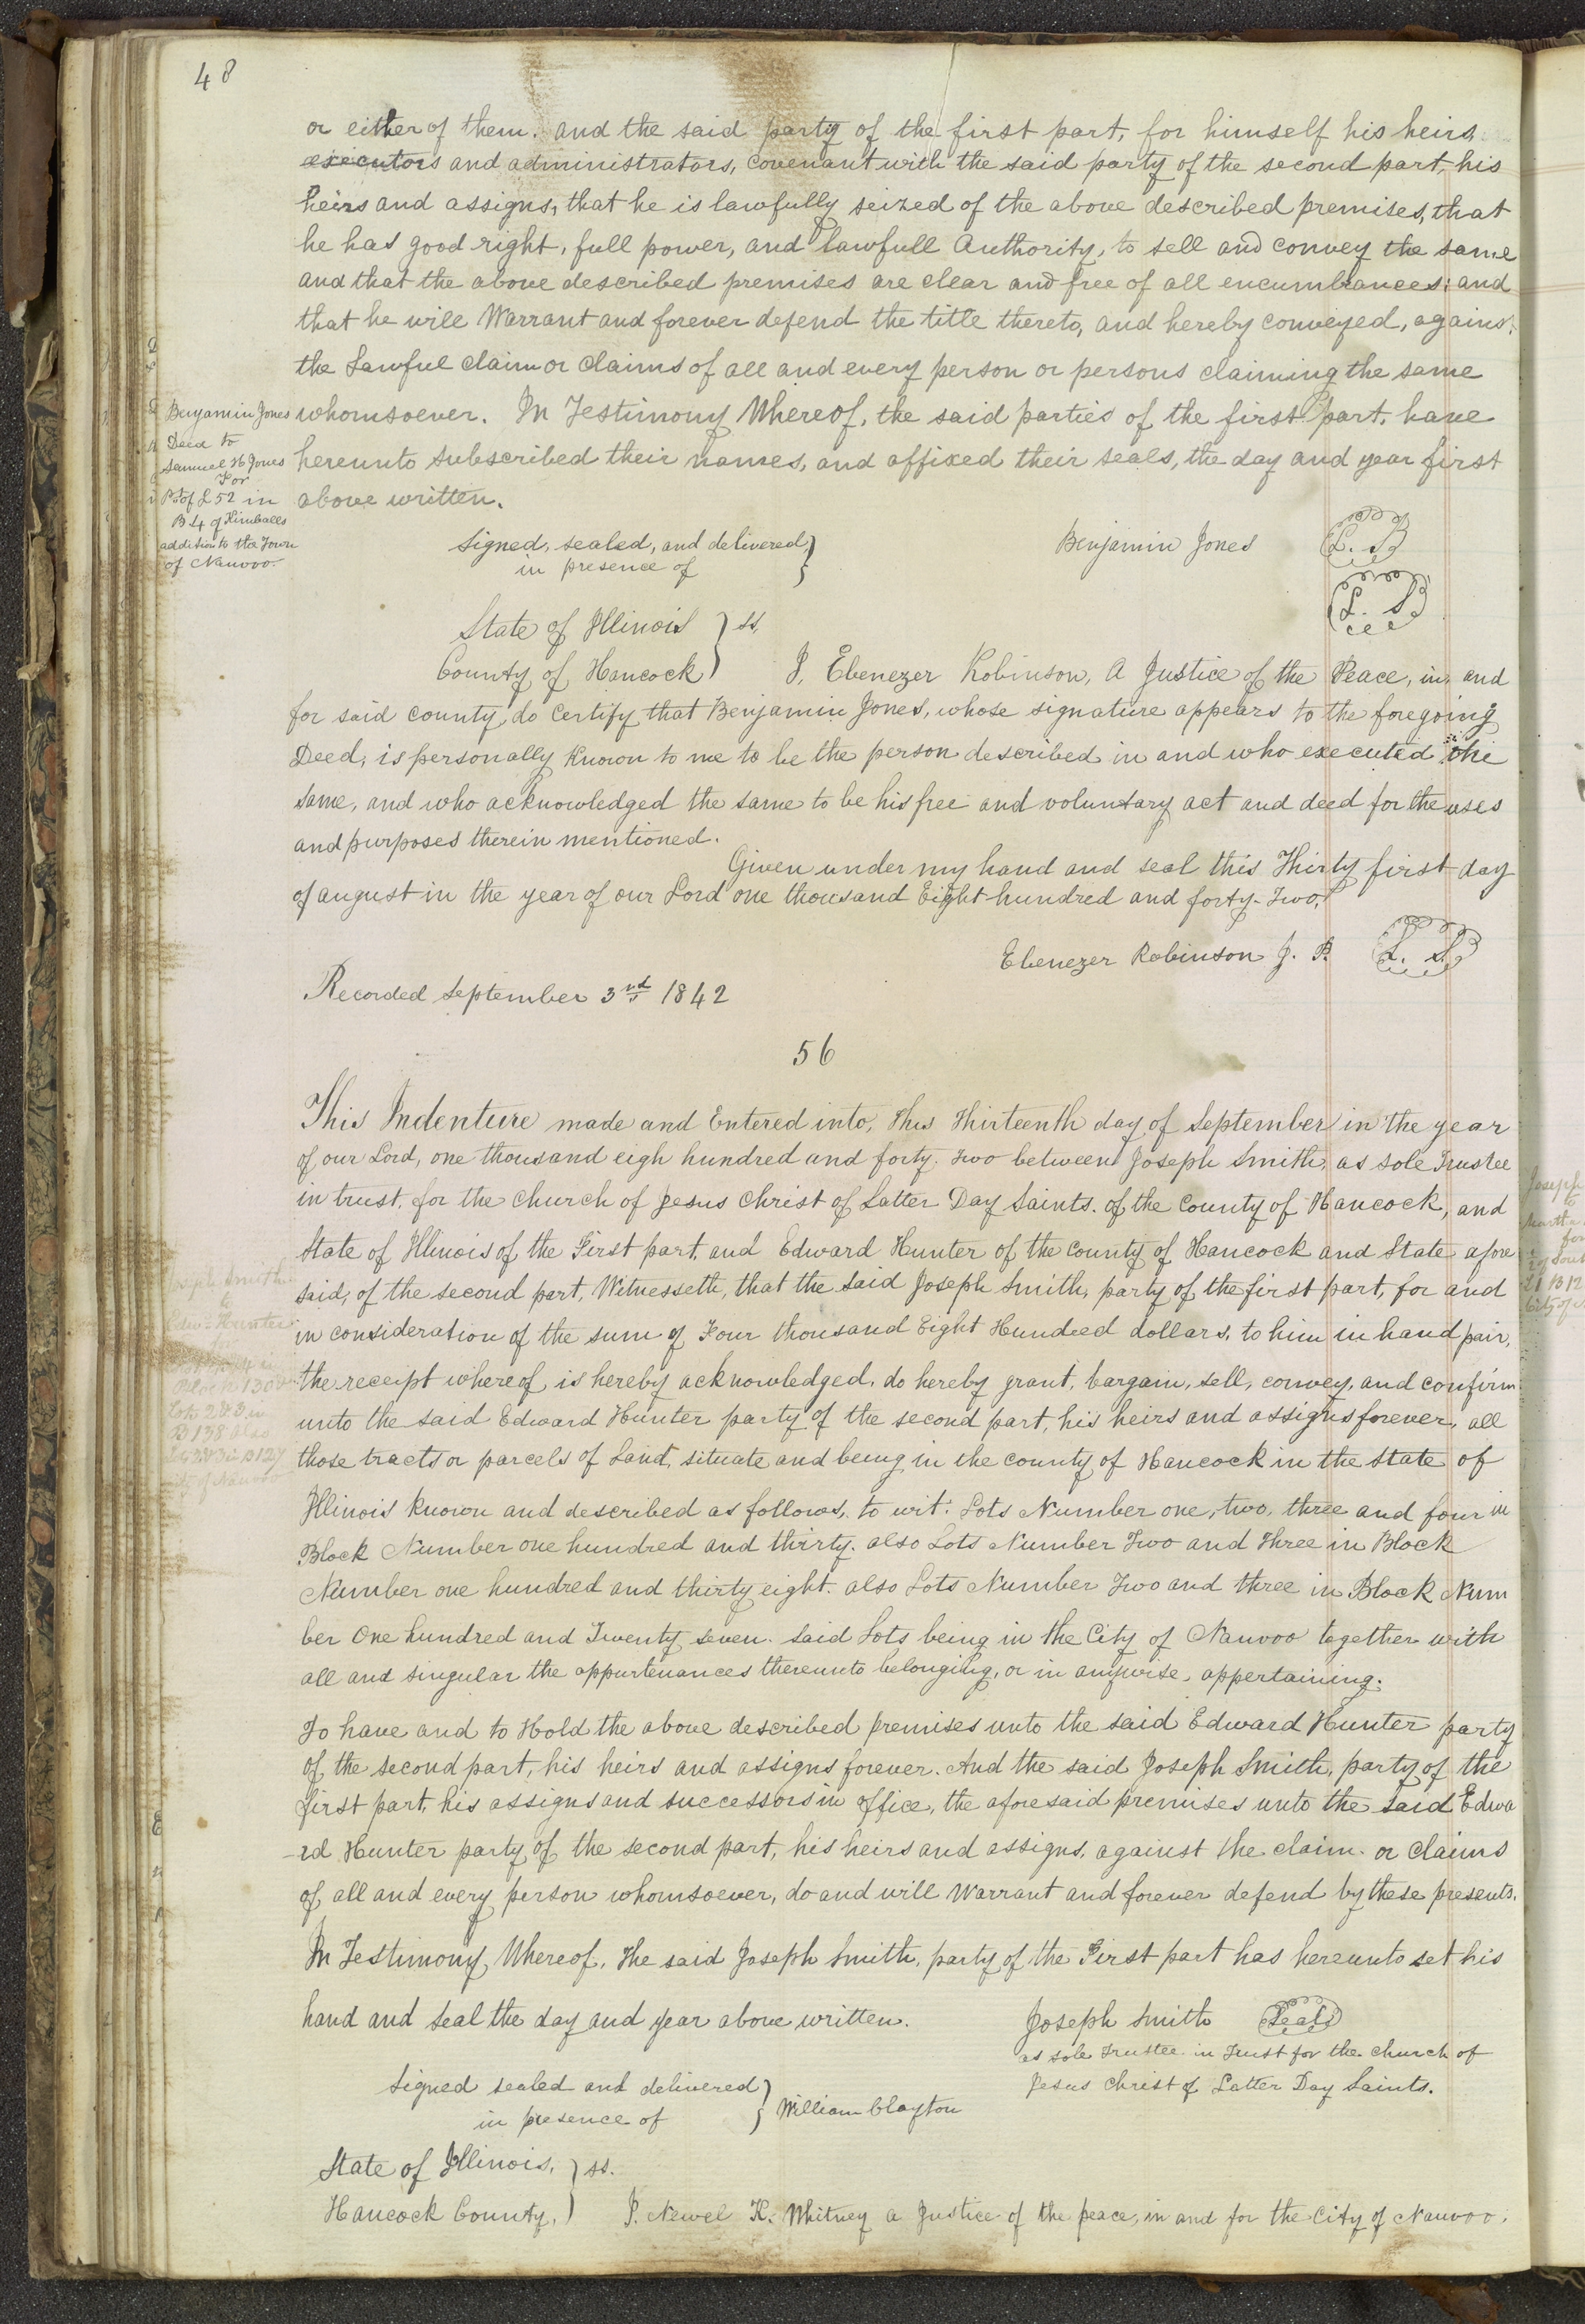 48
or either of them. and the said party of the first part, for himself his heirs
executors and administrators, covenant with the said party of the second part, his
heirs and assigns, that he is lawfully seized of the above described premises, that
he has good right, full power, and lawfull Authority, to sell and convey the same
and that the above described premises are clear and free of all encumbrances: and
that he will Warrant and forever defend the title thereto, and hereby conveyed, agains
the Lawful claim or claims of all and every person or persons claiming the same
whomsoever. In Testimony Whereof, the said parties of the first part, have
hereunto subscribed their names, and affixed their seals, the day and year first
above written.
Benjamin Jones
Deed to
Samuel H Jones
For
Pt of L 52 in
B 4 of Kimballs
addition to the Town
of Nauvoo.
Signed, sealed, and delivered,
in presence of
Benjamin Jones L. S
L. S
State of Illinois } ss.
County of Hancock I, Ebenezer Robinson, A Justice of the Peace, in, and
for said county, do Certify that Benjamin Jones, whose signature appears to the foregoing
Deed, is personally known to me to be the person described in and who executed the
same, and who acknowledged the same to be his free and voluntary act and deed for the uses
and purposes therein mentioned.
Given under my hand and seal this Thirty first day
of august in the year of our Lord one thousand Eight hundred and forty-Two,
Ebenezer Robinson J. P. L. S
Recorded September 3rd 1842
56
This Indenture made and Entered into, this thirteenth day of September in the year
of our Lord, one thousand eigh hundred and forty. two between Joseph Smith, as sole Trustee
in trust, for the Church of Jesus Christ of Latter Day Saints. of the County of Hancock, and
State of Illinois of the First part, and Edward Hunter of the County of Hancock and State afore
said, of the second part, Witnesseth, that the said Joseph Smith, party of the first part, for and
in consideration of the sum of Four thousand Eight Hundred dollars, to him in hand pair,
the receipt whereof, is hereby acknowledged, do hereby grant, bargain, sell, convey, and confirm
unto the said Edward Hunter party of the second part, his heirs and assigns forever, all
those tracts or parcels of Land, situate and being in the county of Hancock in the State of
Illinois known and described as follows, to wit: Lots Number one, two, three and four in
Block Number one hundred and thirty. also Lots Number Two and Three in Block
Number one hundred and thirty eight. also Lots Number Two and three in Block Num
ber One hundred and Twenty seven. Said Lots being in the City of Nauvoo together with
all and singular the appurtenances thereunto belonging, or in anywise, appertaining.
Joseph Smith
to
Edwd Hunter
Block 130
Lots 2 & 3 in
B 138 also
2 & 3 in B 127
City of Nauvoo
To have and to Hold the above described premises unto the said Edward Hunter party
of the second part, his heirs and assigns forever. And the said Joseph Smith, party of the
first part, his assigns and successors in office, the aforesaid premises unto the said Edwa
-rd Hunter party of the second part, his heirs and assigns, against the claim. or claims
of, all and every person whomsoever, do and will Warrant and forever defend by these presents.
In Testimony Whereof, the said Joseph Smith, party of the First part has hereunto set his
hand and seal the day and year above written. Joseph Smith Seal
as sole Trustee in Trust for the church of
Jesus Christ of Latter Day Saints.
Signed sealed and delivered
in presence of } William Clayton
State of Illinois, } ss.
Hancock County, I. Newel K. Whitney a Justice of the peace, in and for the City of Nauvoo,